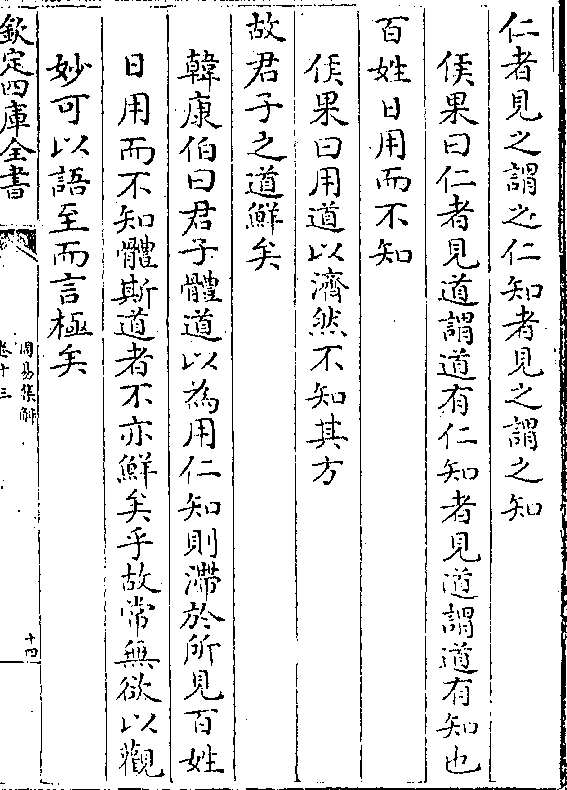 仁者見之謂之仁知者見之謂之知
侯果曰仁者見道謂道有仁知者見道謂道有知也
百姓日用而不知
侯果曰用道以濟然不知其方
故君子之道鮮矣
韓康伯曰君子體道以為用仁知則滯於所見百姓
日用而不知體斯道者不亦鮮矣乎故常無欲以觀
妙可以語至而言極矣
欽定四庫全書
周易集解
卷十三
十四